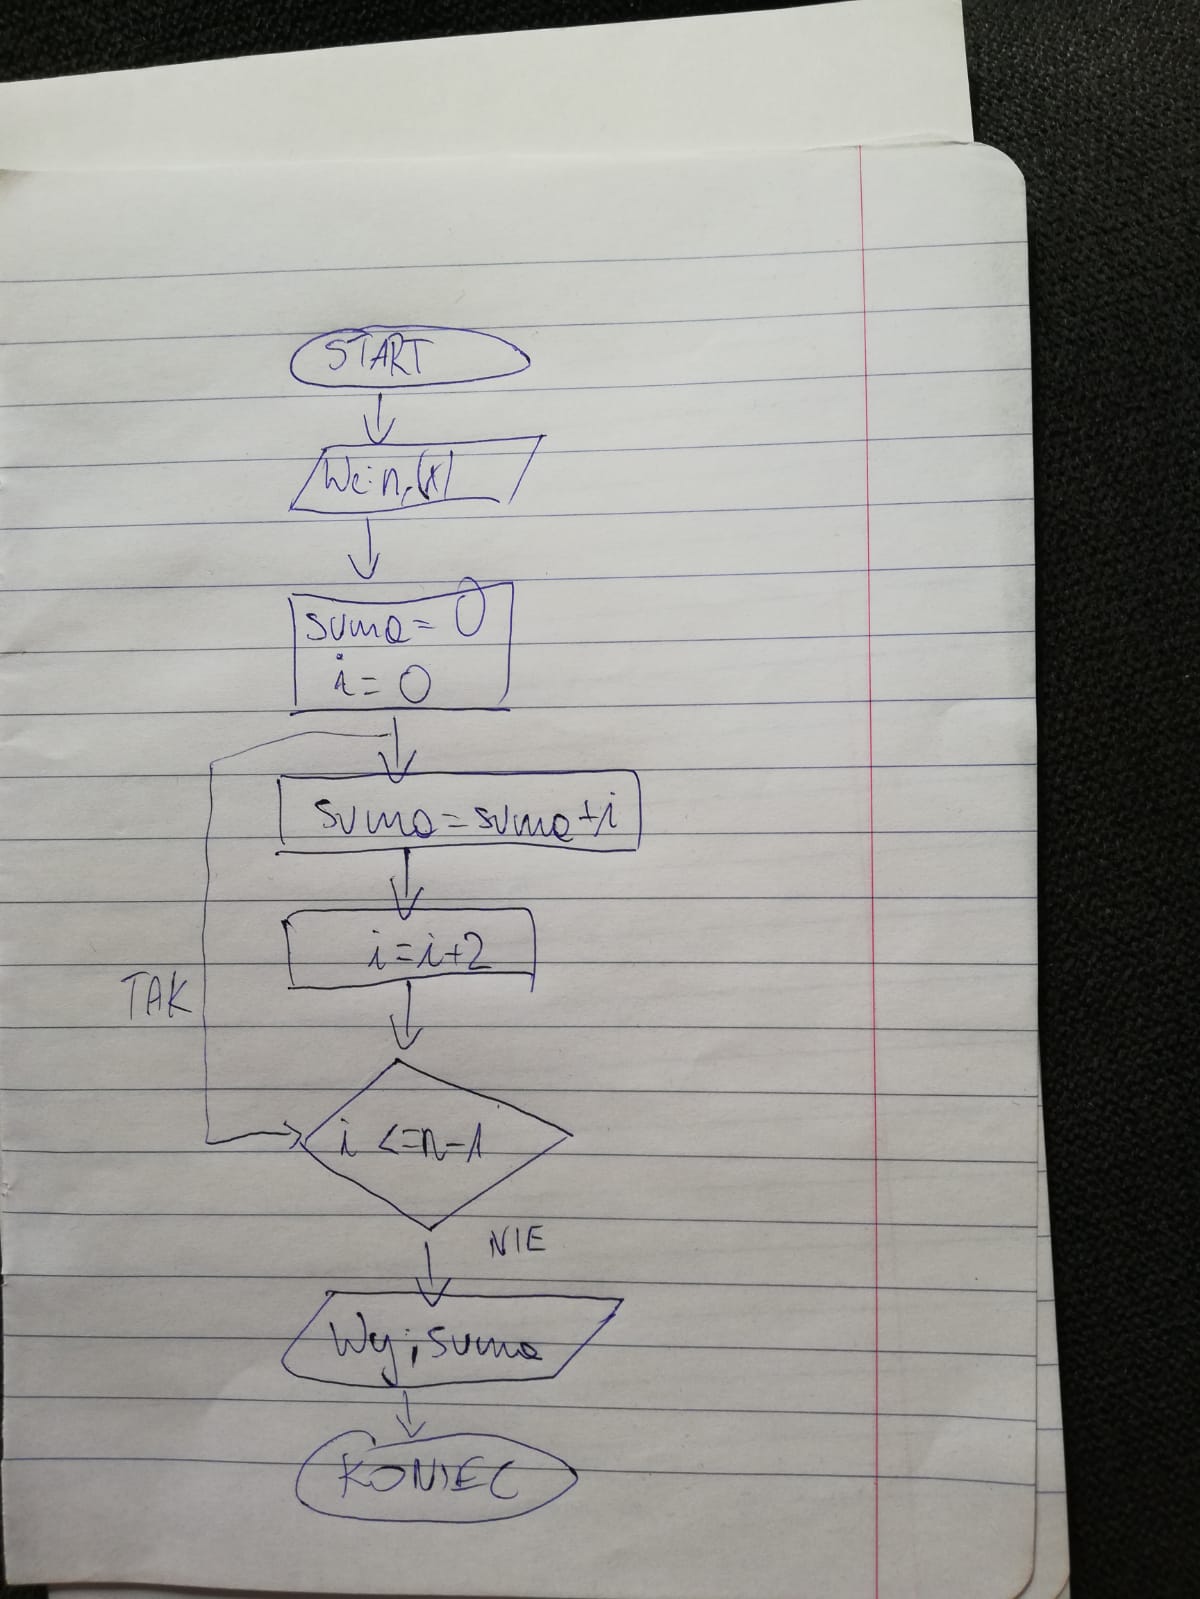 START
We: n, (x)
suma = 0
i = 0
suma = suma + i
i = i + 2
TAK
i <= n - 1
NIE
Wy; suma
KONIEC